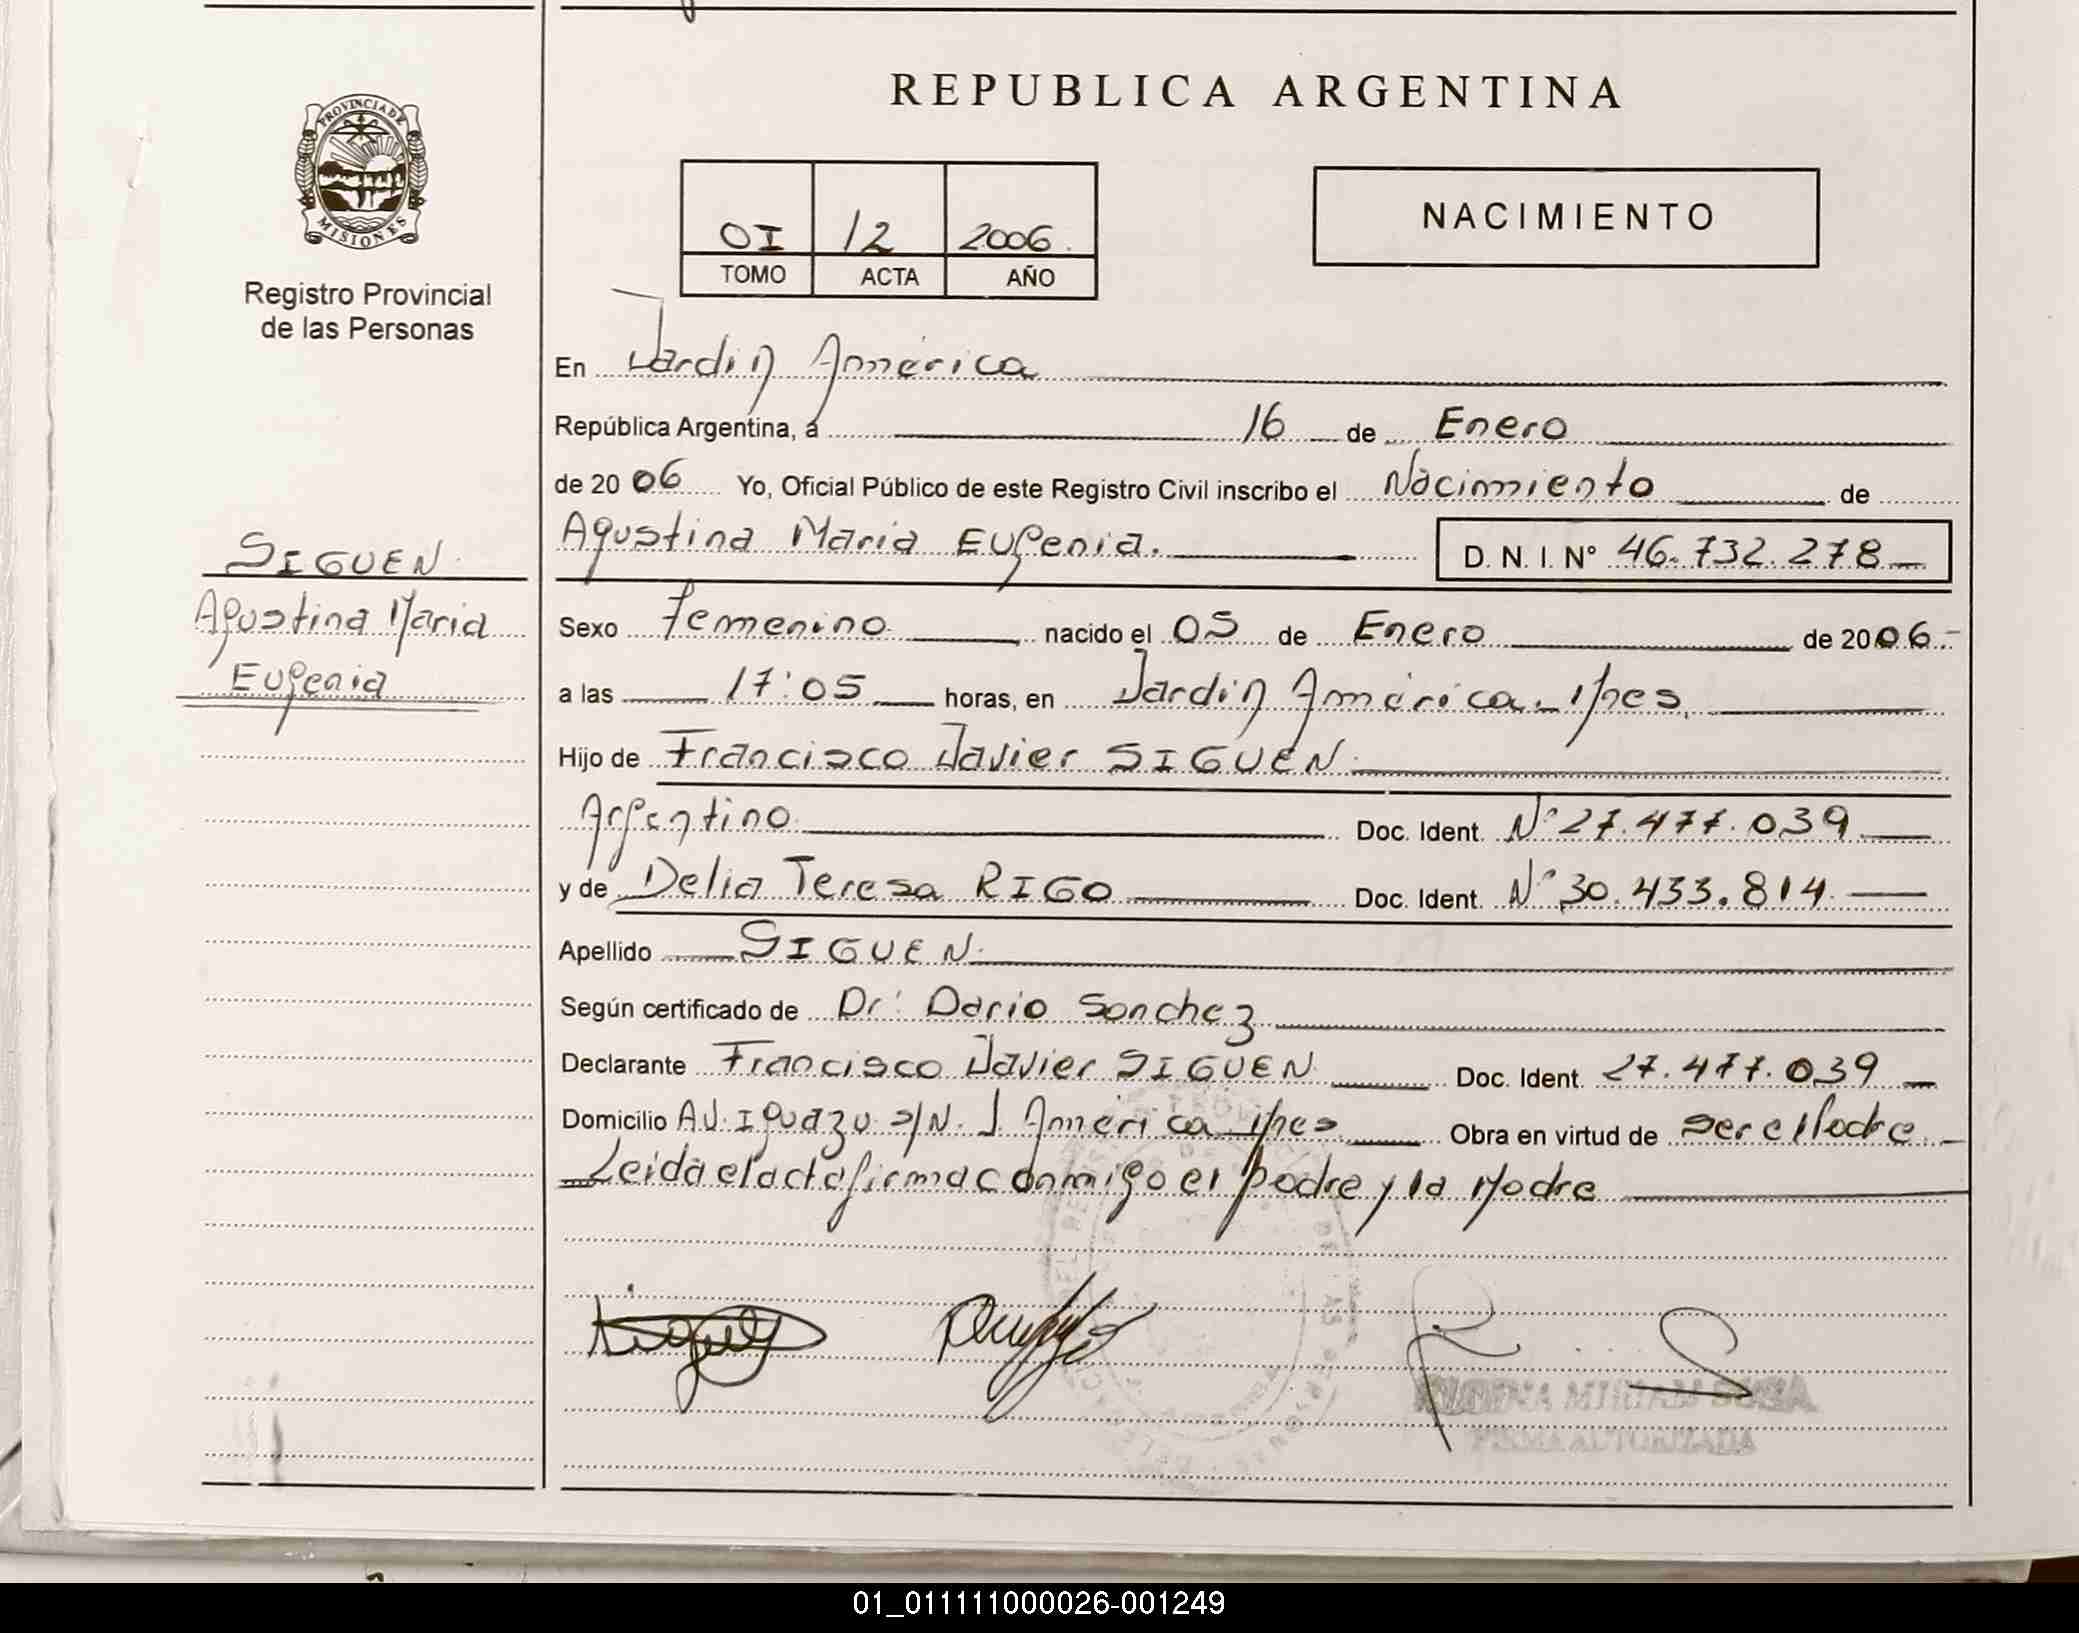 REPUBLICA ARGENTINA
PROVINCIA DE
MISIONES
Registro Provincial
de las Personas
OI 12 2006.
TOMO ACTA AÑO
NACIMIENTO
En Jardin América
República Argentina, a 16 de Enero
de 2006 Yo, Oficial Público de este Registro Civil inscribo el Nacimiento de
Agustina Maria Eugenia. D. N. I. N° 46.732.278
SIGUEN
Agustina Maria
Eugenia
Sexo Femenino nacido el 05 de Enero de 2006.-
a las 17:05 horas, en Jardin América - Mnes.
Hijo de Francisco Javier SIGUEN
Argentino Doc. Ident. N° 27.477.039
y de Delia Teresa RIGO Doc. Ident. N° 30.433.814.
Apellido SIGUEN
Según certificado de Dr. Dario Sanchez
Declarante Francisco Javier SIGUEN Doc. Ident. 27.477.039
Domicilio AV. Iguazu s/N. J. América Mnes. Obra en virtud de ser el Padre.
Leida el acta firma conmigo el padre y la Madre
FIRMA AUTORIZADA
01_011111000026-001249